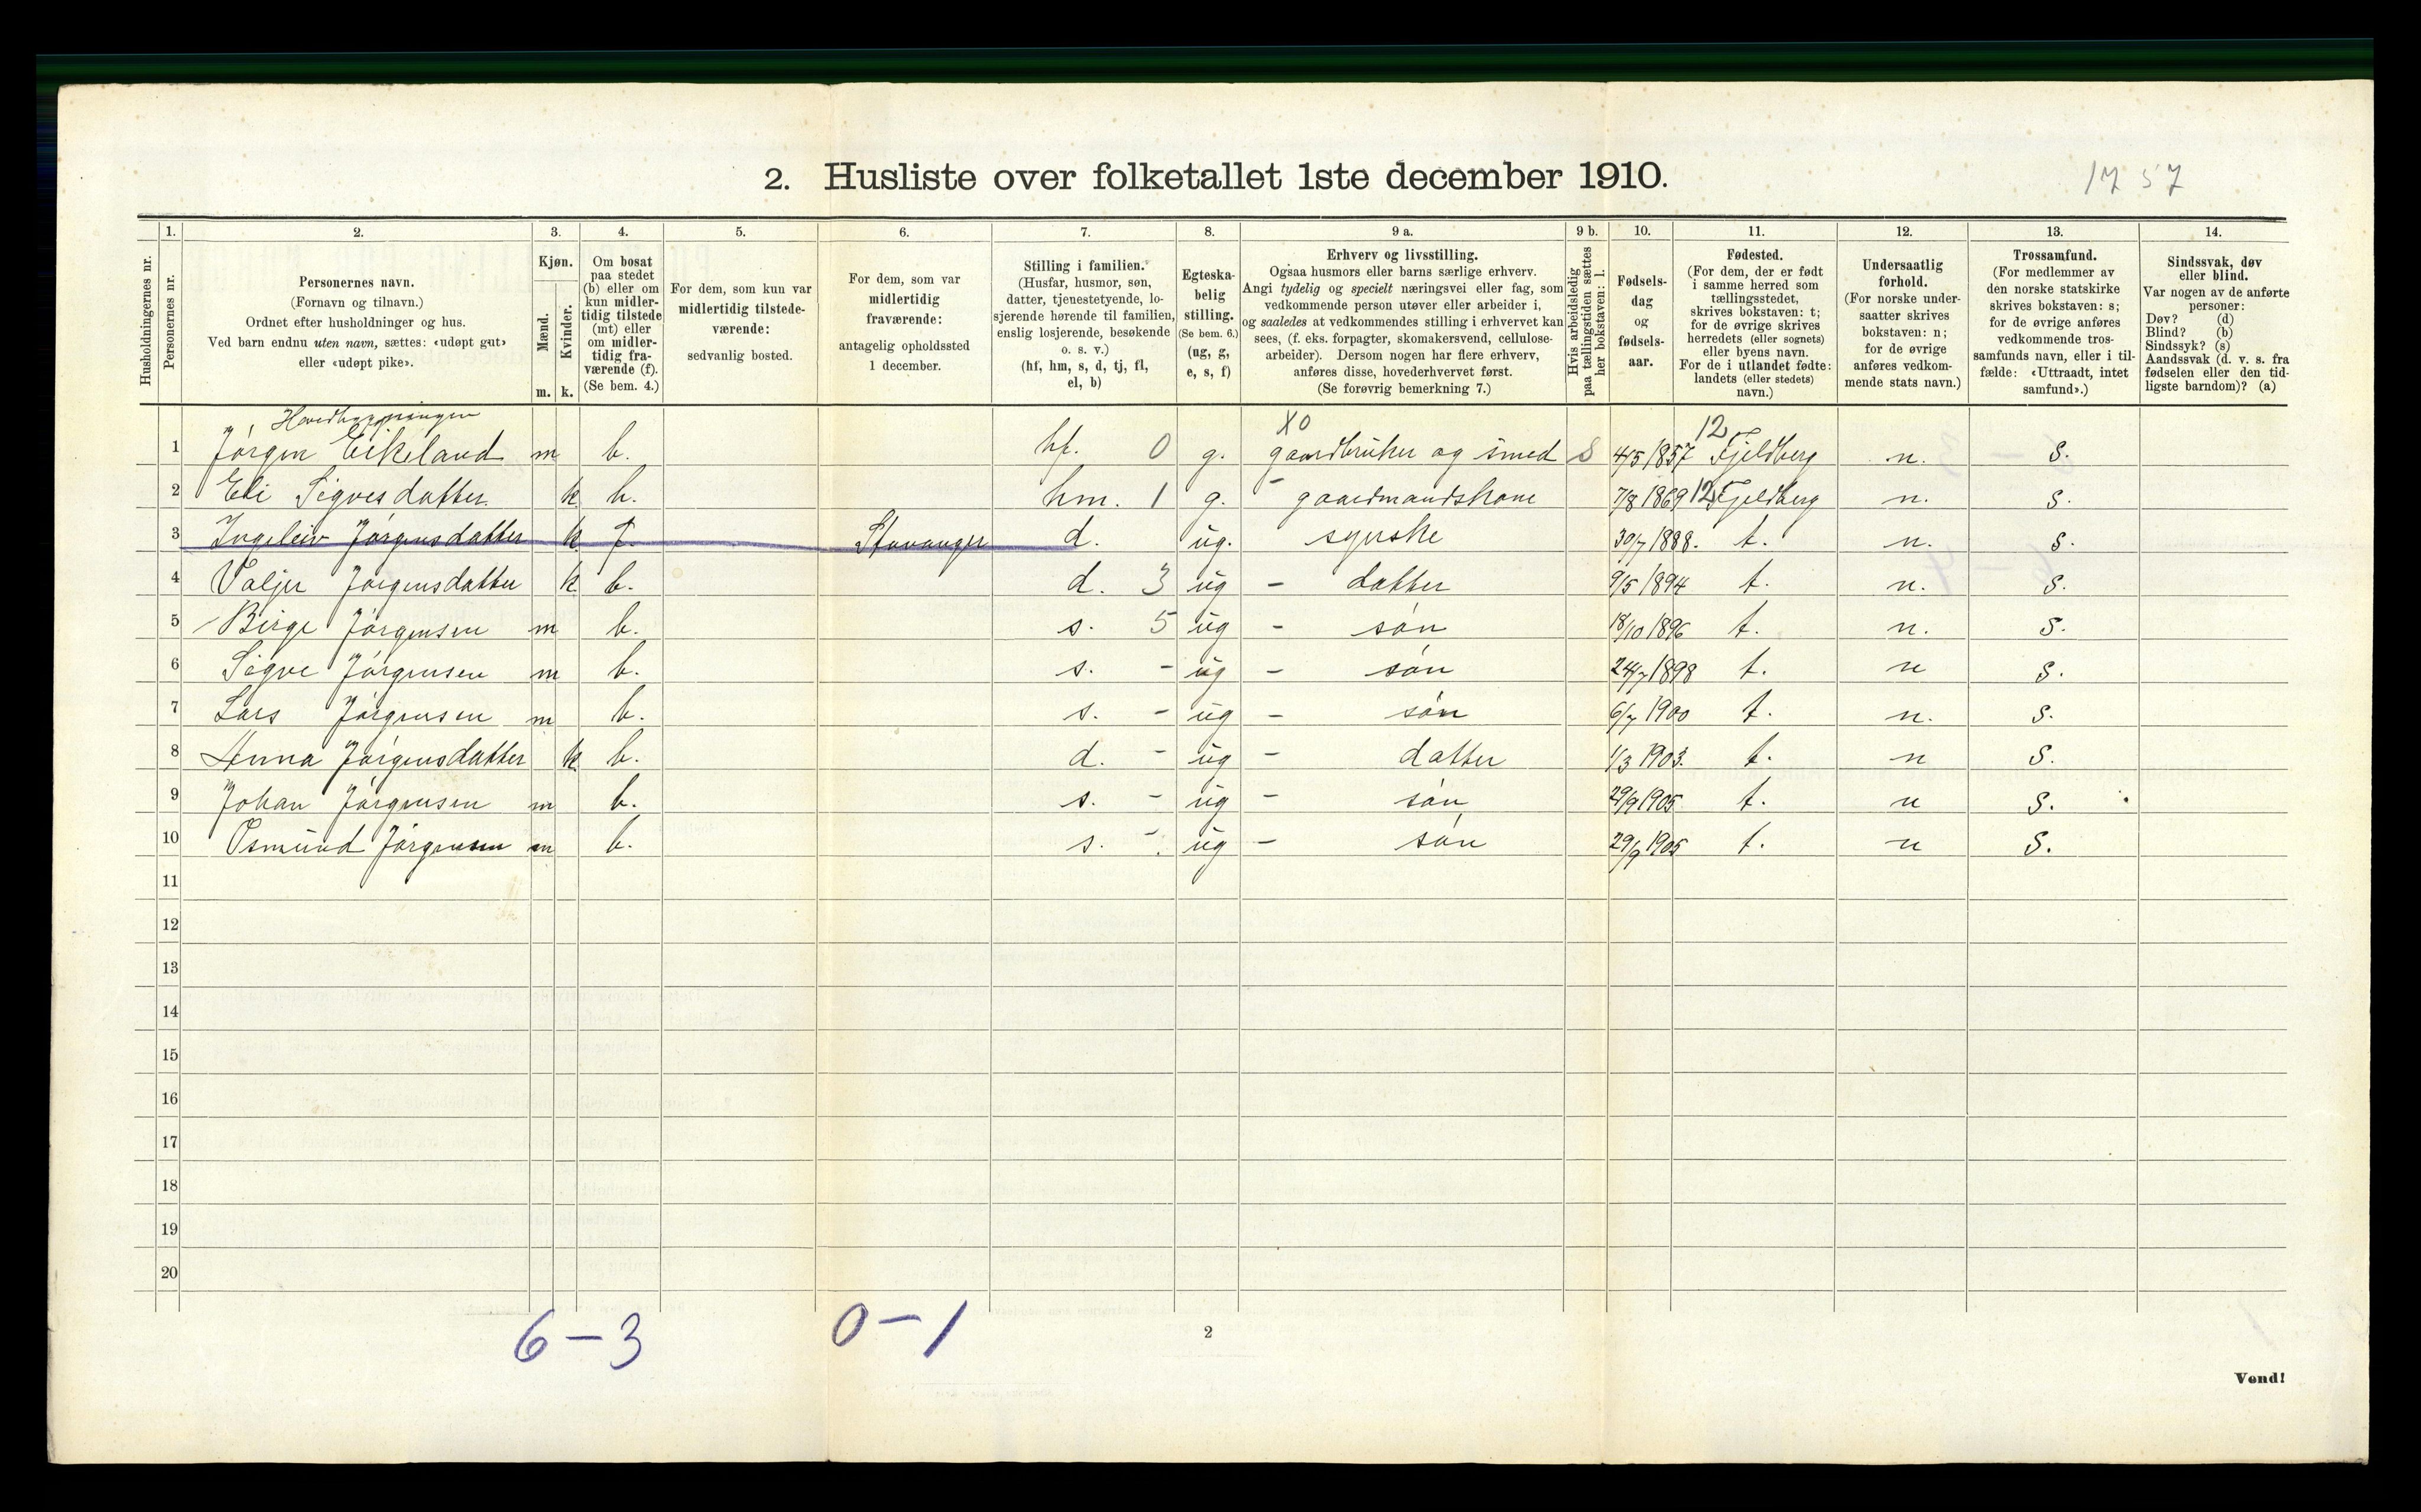 2. Husliste over folketallet 1ste december 1910.
17 57
Husholdningernes nr.
1. Personernes nr.
2. Personernes navn. (Fornavn og tilnavn.) Ordnet efter husholdninger og hus. Ved barn endnu uten navn, sættes: «udøpt gut» eller «udøpt pike».
3. Kjøn. Mænd. m. Kvinder. k.
4. Om bosat paa stedet (b) eller om kun midlertidig tilstede (mt) eller om midlertidig fraværende (f). (Se bem. 4.)
5. For dem, som kun var midlertidig tilstedeværende: sedvanlig bosted.
6. For dem, som var midlertidig fraværende: antagelig opholdssted 1 december.
7. Stilling i familien. (Husfar, husmor, søn, datter, tjenestetyende, losjerende hørende til familien, enslig losjerende, besøkende o. s. v.) (hf, hm, s, d, tj, fl, el, b)
8. Egteskabelig stilling. (Se bem. 6.) (ug, g, e, s, f)
9 a. Erhverv og livsstilling. Ogsaa husmors eller barns særlige erhverv. Angi tydelig og specielt næringsvei eller fag, som vedkommende person utøver eller arbeider i, og saaledes at vedkommendes stilling i erhvervet kan sees, (f. eks. forpagter, skomakersvend, cellulosearbeider). Dersom nogen har flere erhverv, anføres disse, hovederhvervet først. (Se forøvrig bemerkning 7.)
9 b. Hvis arbeidsledig paa tællingstiden sættes her bokstaven: l.
10. Fødselsdag og fødselsaar.
11. Fødested. (For dem, der er født i samme herred som tællingsstedet, skrives bokstaven: t; for de øvrige skrives herredets (eller sognets) eller byens navn. For de i utlandet fødte: landets (eller stedets) navn.)
12. Undersaatlig forhold. (For norske undersaatter skrives bokstaven: n; for de øvrige anføres vedkommende stats navn.)
13. Trossamfund. (For medlemmer av den norske statskirke skrives bokstaven: s; for de øvrige anføres vedkommende trossamfunds navn, eller i tilfælde: «Uttraadt, intet samfund».)
14. Sindssvak, døv eller blind. Var nogen av de anførte personer: Døv? (d) Blind? (b) Sindssyk? (s) Aandssvak (d. v. s. fra fødselen eller den tidligste barndom)? (a)
Hovedbygningen
X0 12
1 Jórgen Eikeland m b. hf. 0 g. gaardbruker og smed S 4/5 1857 Fjeldberg n. s.
2 Eli Sigvesdatter k b. hm. 1 g. - gaardmandskone 7/8 1869 12 Fjeldberg n. s.
3 Ingeleiv Jórgensdatter k f. Stavanger d. ug. syerske 30/7 1888. t. n. s.
4 Valjer Jórgensdatter k b. d. 3 ug - datter 9/5 1894 t. n. s.
5 Birge Jórgensen m b. s. 5 ug - són 18/10 1896 t. n. s.
6 Sigve Jórgensen m b. s. - ug - són 24/7 1898 t. n s.
7 Lars Jórgensen m b. s. - ug - són 6/7 1900 t. n. s.
8 Anna Jórgensdatter k b. d. - ug - datter 1/3 1903. t. n s.
9 Johan Jórgensen m b. s. - ug - són 29/9 1905 t. n s.
10 Osmund Jórgensen m b. s. - ug - són 29/9 1905 t. n s.
11
12
13
14
15
16
17
18
19
20
6-3 0-1
2
Vend!